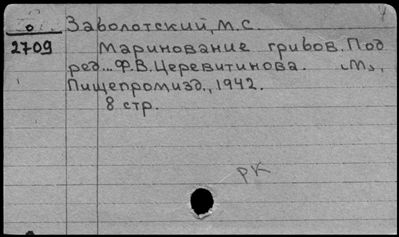 о Заболотский, М.С.
2709 Маринование грибов. Под
ред... Ф.В.Церевитинова. М.,
Пищепромизд., 1942.
8 стр.
РК